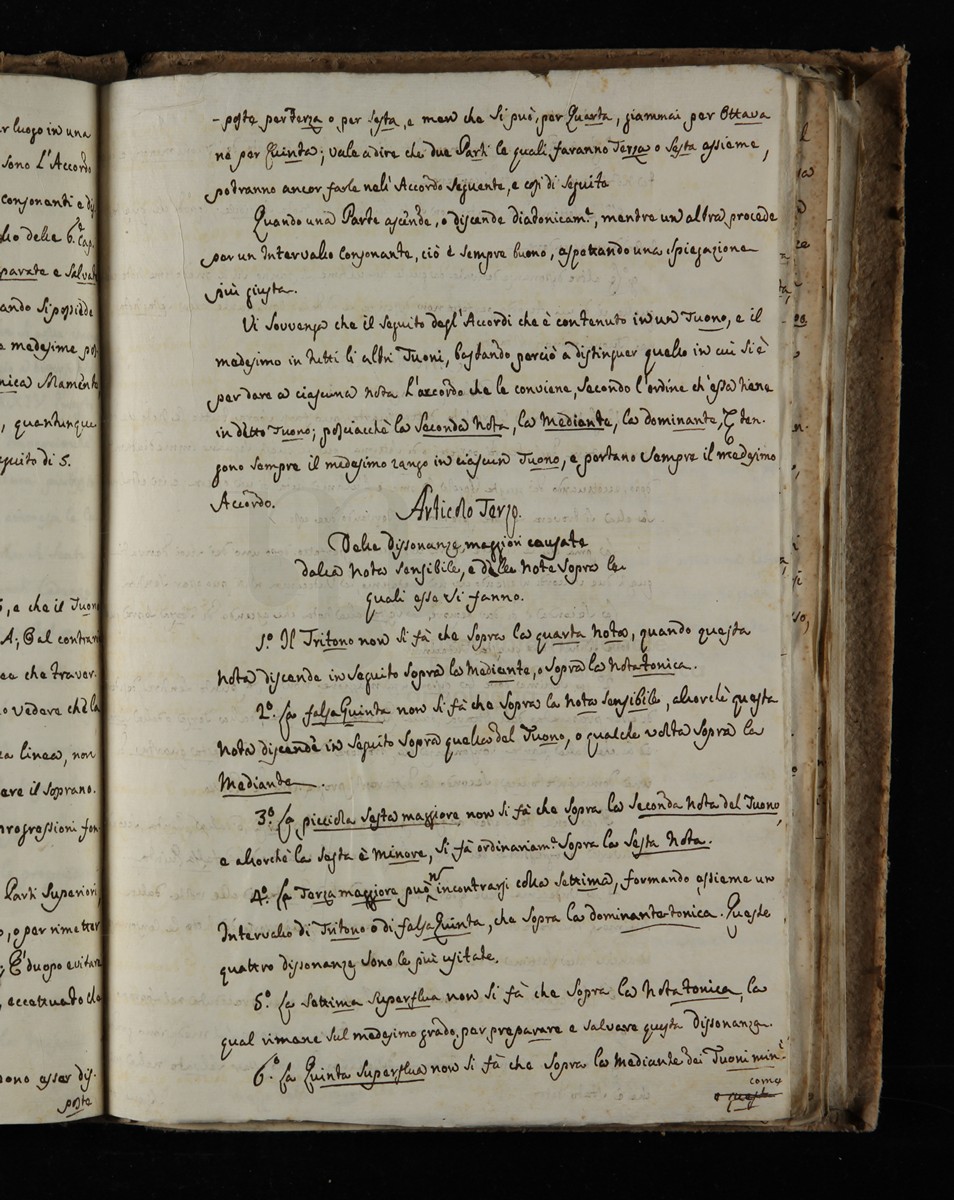 r luogo in una
sono l'Accordo
consonanti e di
lio delle 6.e Cap.
parate e salvat
ando si possiede
e medesime po
nica Mamente
, quantunque
guito di 5.
5, e che il Tuon
A; E al contrar
ea che traver.
o vedere che la
a linea, non
are il soprano.
rogressioni fon
Parti Superiori
o, o per rimetter
; E' duopo evitare
, eccettuato che
dono esser dis-
poste
- poste per Terza o per sesta, e men che si può, per Quarta, giammai per Ottava
nè per Quinta; vale a dire che due Parti le quali faranno Terza o Sesta assieme,
potranno ancor farle nell'Accordo seguente, e così di seguito
Quando una Parte ascende, o discende diatonicam.e, mentre un altra procede
per un Intervallo Consonante, ciò è sempre buono, aspettando una spiegazione
più giusta.
Vi sovvenga che il seguito degl'Accordi che è contenuto in un Tuono, è il
medesimo in tutti li altri Tuoni, bastando perciò a distinguer quello in cui si è
per dare a ciascuna nota l'accordo che le conviene, secondo l'ordine ch'essa tiene
in detto Tuono; posciacchè la Seconda Nota, la Mediante, la dominante, & ten-
gono sempre il medesimo rango in ciascun Tuono, e portano sempre il medesimo
Accordo.
Articolo Terzo.
Delle dissonanze maggiori causate
dalla nota sensibile, e delle note sopra le
quali esse si fanno.
1.o Il Tritono non si fà che sopra la quarta nota, quando questa
nota discende in seguito sopra la Mediante, o sopra la Nota tonica.
2.o La falsa Quinta non si fà che sopra la nota sensibile, allorchè questa
nota discende in seguito sopra quella del Tuono, o qualche volta sopra la
Mediante.
3.o La picciola Sesta maggiore non si fà che sopra la Seconda Nota del Tuono,
e allorchè la sesta è Minore, si fà ordinariam.e sopra la Sesta Nota.
4.o La Terza maggiore può n incontrarsi colla settima, formando assieme un
Intervallo di Tritono o di falsa Quinta, che sopra la dominante-tonica. Queste
quattro dissonanze sono le più usitate.
5.o La settima superflua non si fà che sopra la Nota tonica, la
qual rimane sul medesimo grado, per preparare e salvare questa dissonanza.
6.o La Quinta superflua non si fà che sopra la Mediante dei Tuoni min.i
come